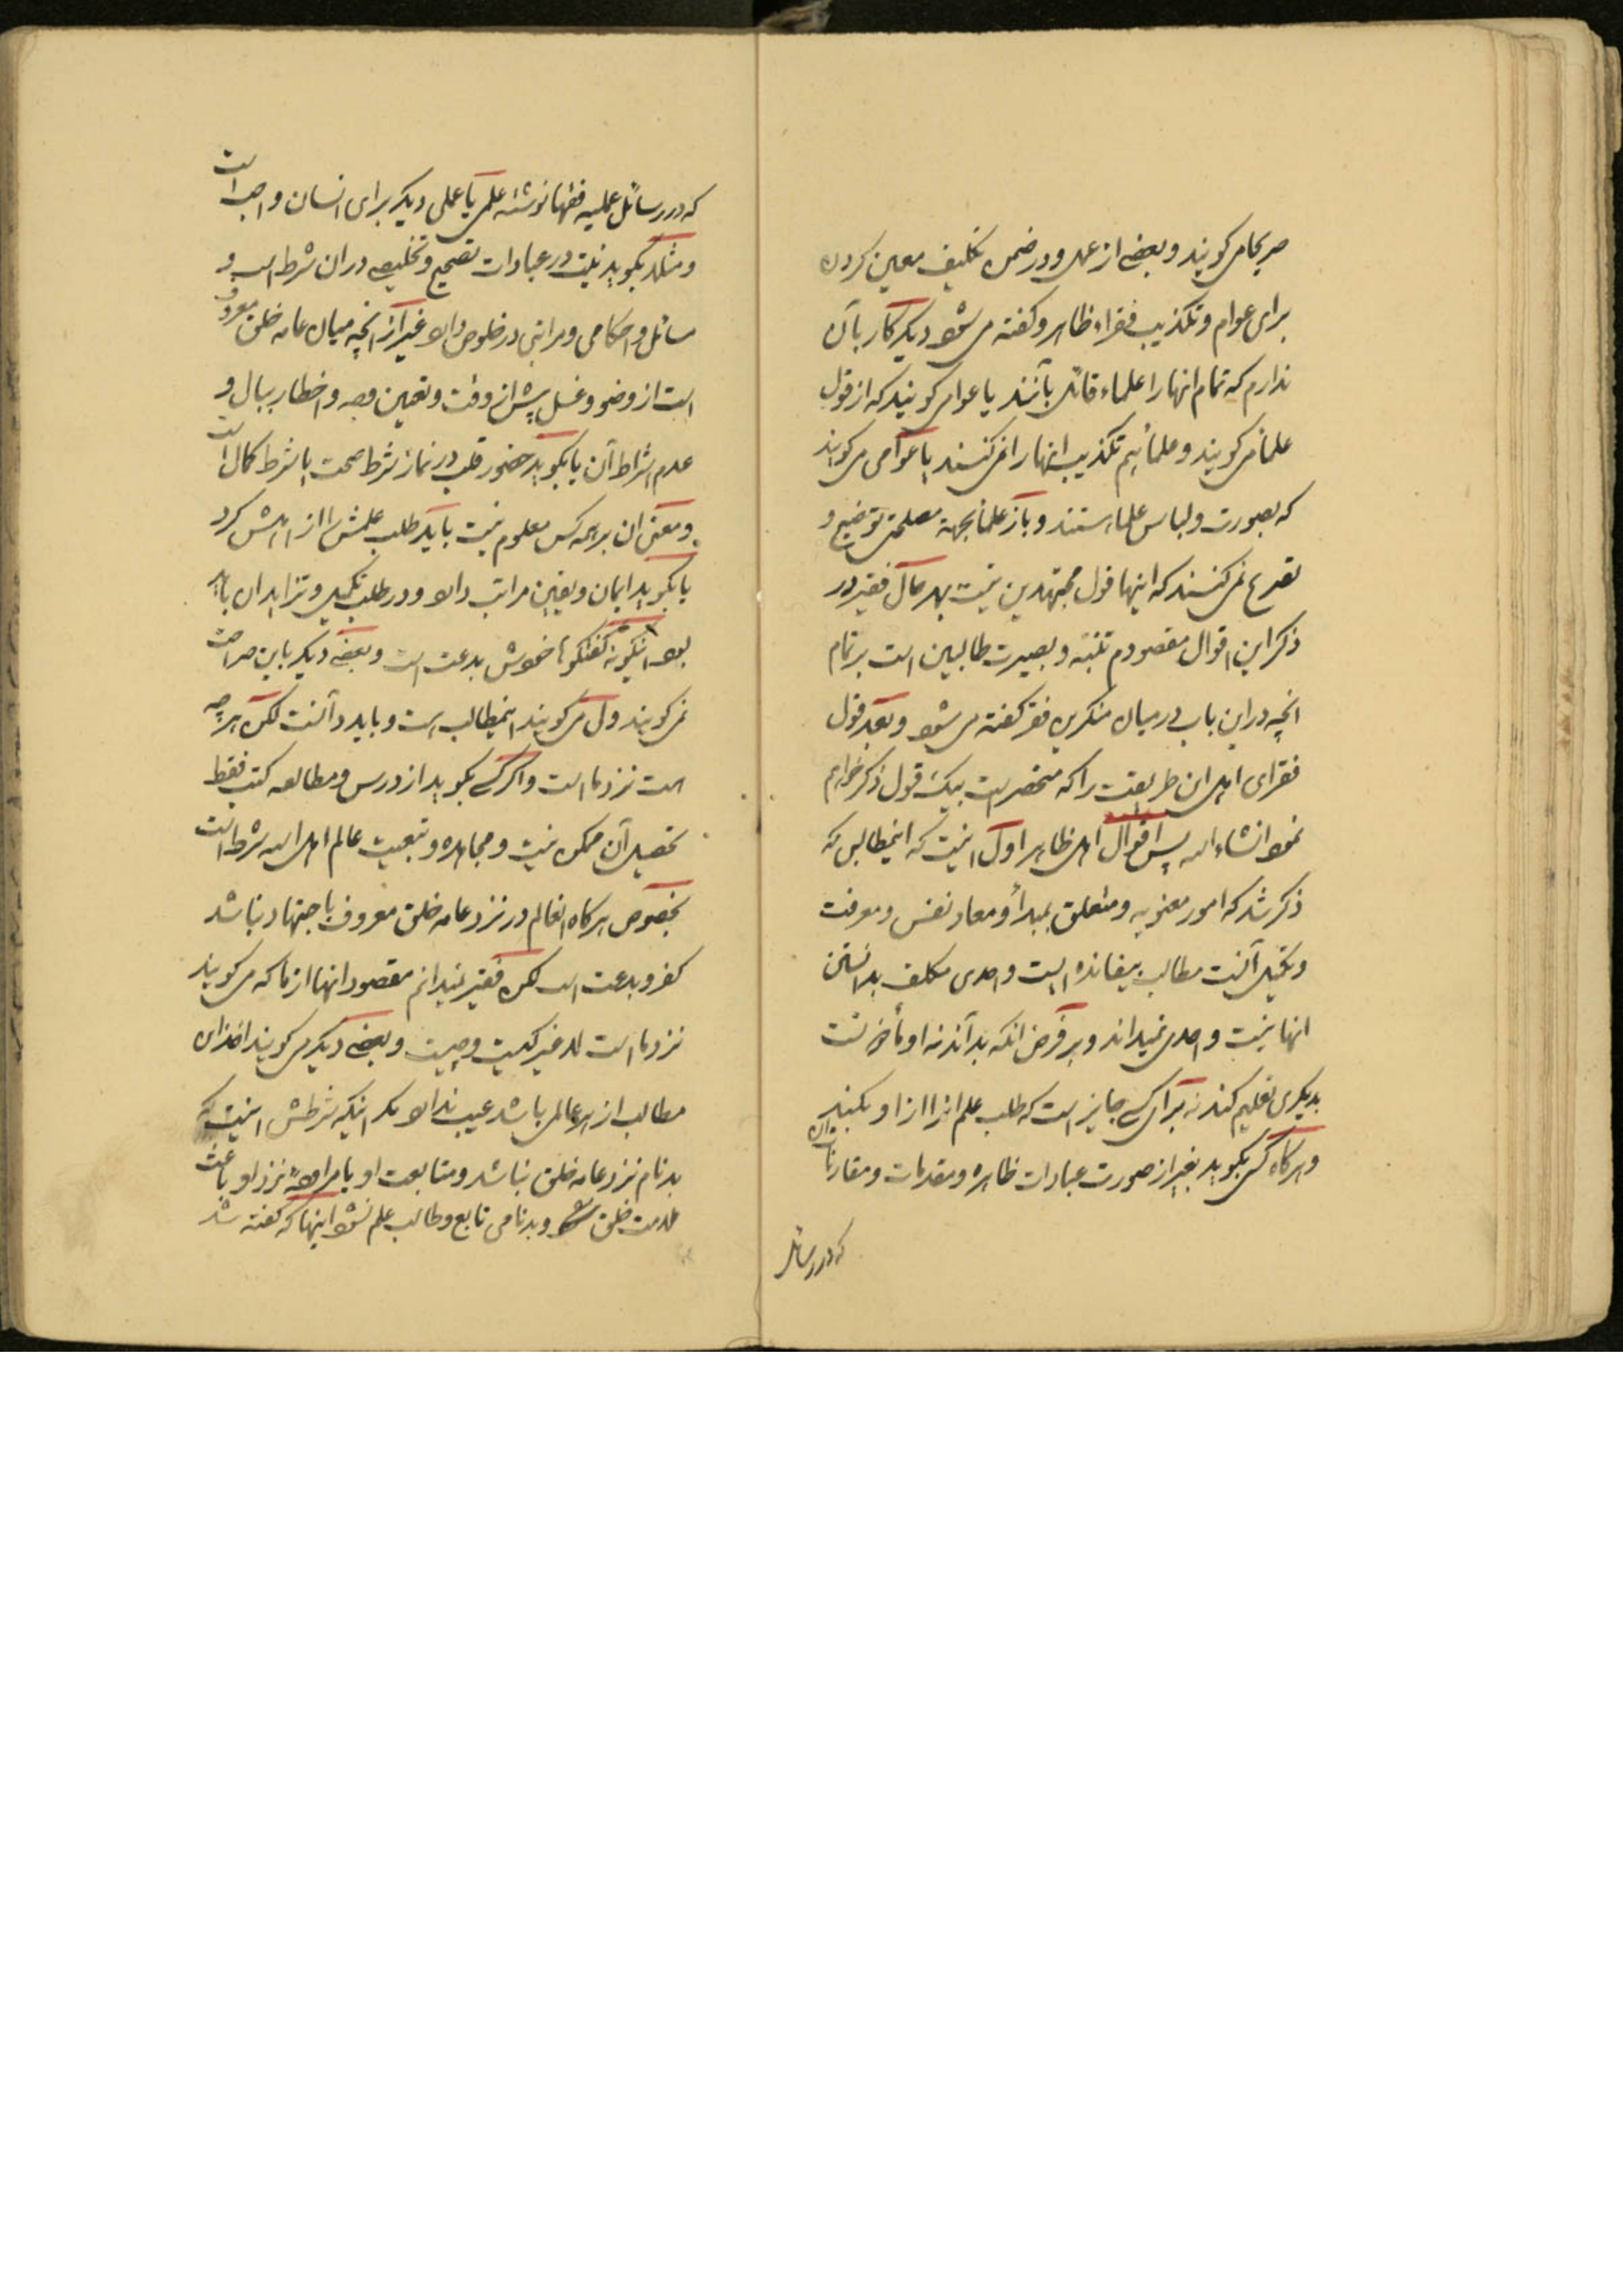 صریحا میگویند و بعضی از عمل و در ضمن تکلیف معین کردن
برای عوام و تکذیب فقراء ظاهر و گفته می شود دیگر کار بآن
ندارم که تمام انها را علماء قائل باشند یا عوام گویند که از قول
علما میگویند و علما هم تکذیب انها را نمی کنند یا عوامی می گویند
که بصورت و لباس علما هستند و باز علما بجهة مصلحتی توضیح و
تصریح نمی کنند که اینها قول مجتهدین نیست بهر حال فقیر در
ذکر این اقوال مقصودم تنبّه و بصیرت طالبین است بر تمام
انچه در این باب در میان منکرین فقر گفته می شود و بعد قول
فقرای اهل این طریقت را که منحصر است بیک قول ذکر خواهم
نمود انشاء الله پس اقوال اهل ظاهر اول اینست که اینمطالب که
ذکر شد که امور معنویه و متعلق بمبدأ و معاد نفس و معرفت
و تکمیل آنست مطالب بیفائده ایست و احدی مکلف بدانستن
انها نیست و احدی نمیداند و بر فرض انکه بداند نه او مأذون است
بدیگری تعلیم کند نه برای کسی جایز است که طلب علم انرا از او بکند
و هرگاه کسی بگوید بغیر از صورت عبادات ظاهره و مقدمات و مقارنات ان
که در رسائل
که در رسائل عملیه فقها نوشته علمی یا عملی دیگر برای انسان واجب است
و مثلا بگوید نیت در عبادات تصحیح و تخلیص در ان شرط است و
مسائل و احکامی و مراتبی در خلوص دارد غیر از انچه میان عامه خلق معروف
است از وضو و غسل پیش از وقت و تعیین وجه و اخطار ببال و
عدم اشتراط آن یا بگوید حضور قلب در نماز شرط صحت یا شرط کمال است
و معنی ان بر همه کس معلوم نیست باید طلب علمش را از اهلش کرد
یا بگوید ایمان و یقین مراتب دارد و در طلب تکمیل و تزاید ان باید
بود اینگونه گفتگوها خودش بدعت است و بعضی دیگر باین صراحت
نمی گویند ولی می گویند اینمطالب هست و باید دانست لکن هر چه
هست نزد ما است و اگر کسی بگوید از درس و مطالعه کتب فقط
تحصیل آن ممکن نیست و مجاهده و تبعیت عالم اهل الله شرط است
بخصوص هرگاه انعالم در نزد عامه خلق معروف باجتهاد نباشد
کفر و بدعت است لکن فقیر نمیدانم مقصود انها از ما که می گویند
نزد ما است لا غیر کیست و چیست و بعضی دیگر می گویند اخذ این
مطالب از هر عالمی باشد عیب ندارد مگر اینکه شرطش اینست که
بدنام نزد عامه خلق نباشد و متابعت او یا مراوده نزد او باعث
ملامت خلق و بدنامی تابع و طالب علم نشود اینها که گفته شد